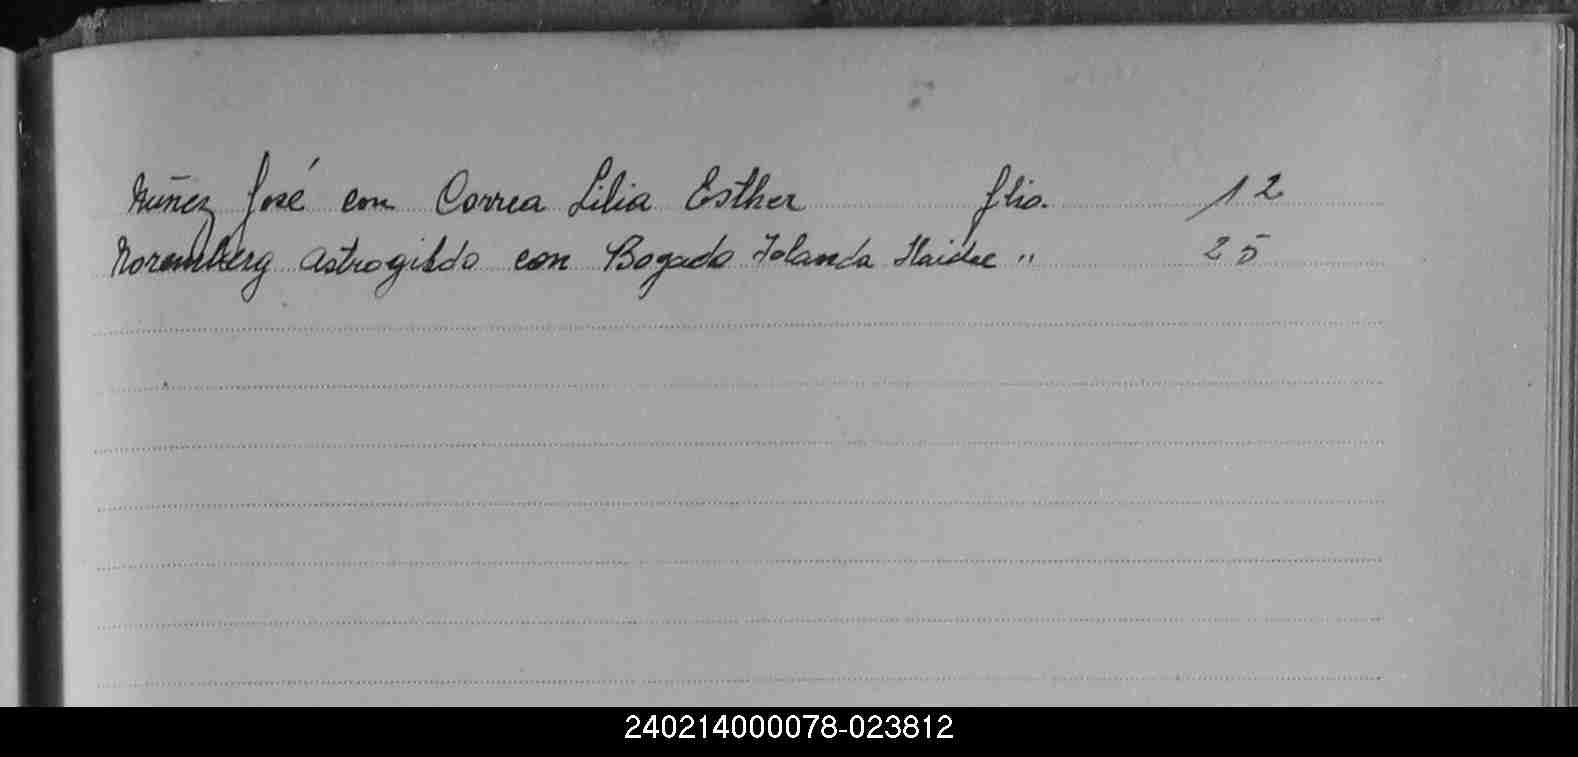 Núñez José con Correa Lilia Esther flio. 12
Noremberg Astrogildo con Bogado Iolanda Haidee " 25
240214000078-023812